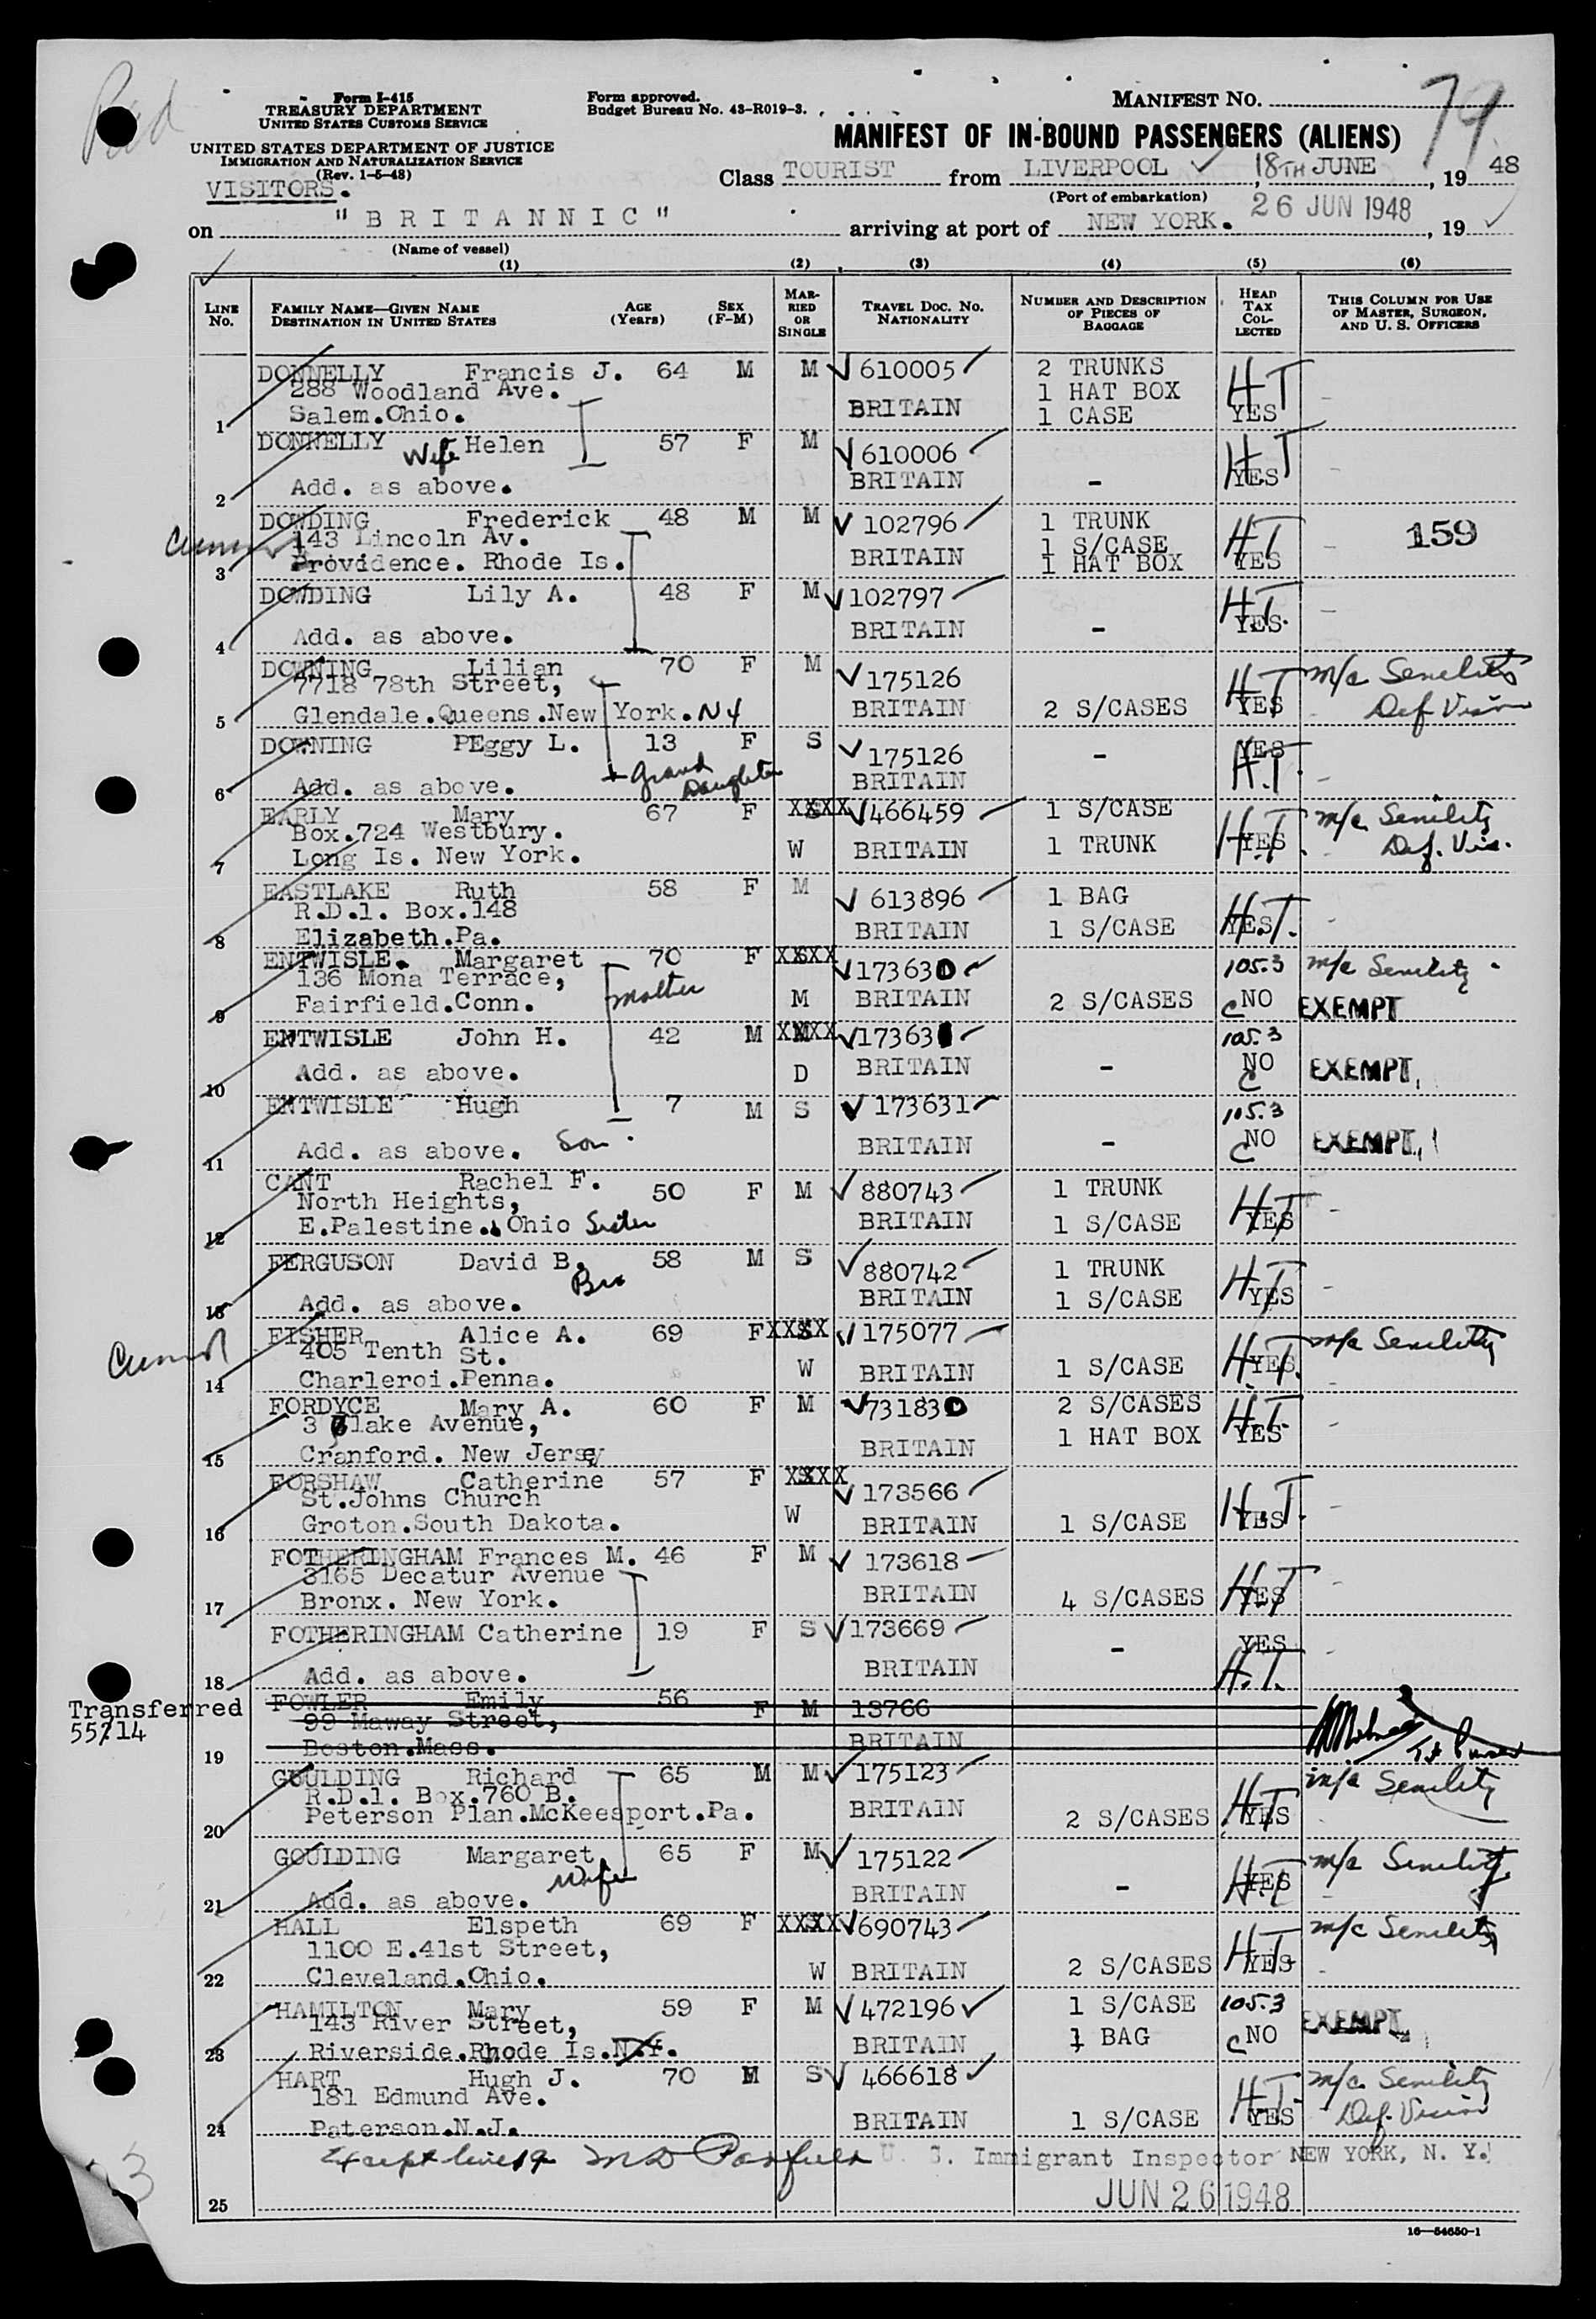 Form I-415
TREASURY DEPARTMENT
UNITED STATES CUSTOMS SERVICE
UNITED STATES DEPARTMENT OF JUSTICE
IMMIGRATION AND NATURALIZATION SERVICE
(Rev. 1-5-48)
VISITORS.
Form approved.
Budget Bureau No. 43-R019-3.
MANIFEST NO. 79
MANIFEST OF IN-BOUND PASSENGERS (ALIENS)
Class TOURIST from LIVERPOOL, 18TH JUNE, 19 48
(Port of embarkation)
on "BRITANNIC" arriving at port of NEW YORK. 26 JUN 1948, 19
(Name of vessel)
(1) (2) (3) (4) (5) (6)
LINE No. FAMILY NAME—GIVEN NAME DESTINATION IN UNITED STATES AGE (Years) SEX (F-M) MARRIED OR SINGLE TRAVEL DOC. NO. NATIONALITY NUMBER AND DESCRIPTION OF PIECES OF BAGGAGE HEAD TAX COLLECTED THIS COLUMN FOR USE OF MASTER, SURGEON, AND U. S. OFFICERS
DONNELLY Francis J. 64 M M 610005 2 TRUNKS
288 Woodland Ave. 1 HAT BOX HT
1 Salem.Ohio. BRITAIN 1 CASE YES
DONNELLY Wife Helen 57 F M 610006 HT
2 Add. as above. BRITAIN - YES
DOWDING Frederick 48 M M 102796 1 TRUNK HT 159
143 Lincoln Av. 1 S/CASE
3 Providence. Rhode Is. BRITAIN 1 HAT BOX YES
DOWDING Lily A. 48 F M 102797 HT
4 Add. as above. BRITAIN - YES
DOWNING Lilian 70 F M 175126 HT m/c Senility
7718 78th Street,
5 Glendale.Queens.New York. NY BRITAIN 2 S/CASES YES Def Vision
DOWNING PEggy L. 13 F S 175126 - YES
6 Add. as above. + Grand Daughter BRITAIN H.T.
EARLY Mary 67 F XXXX 466459 1 S/CASE m/c Senility
Box.724 Westbury.
7 Long Is. New York. W BRITAIN 1 TRUNK H.T. YES Def. Vis.
EASTLAKE Ruth 58 F M 613896 1 BAG
R.D.1. Box.148
8 Elizabeth.Pa. BRITAIN 1 S/CASE H.T. YES
ENTWISLE. Margaret 70 F XXXX 173630 105.3 m/c Senility
136 Mona Terrace, mother
9 Fairfield.Conn. M BRITAIN 2 S/CASES C NO EXEMPT
ENTWISLE John H. 42 M XXXX 173631 105.3
10 Add. as above. D BRITAIN - NO C EXEMPT
ENTWISLE Hugh 7 M S 173631 105.3
11 Add. as above. Son BRITAIN - C NO EXEMPT
CANT Rachel F. 50 F M 880743 1 TRUNK
North Heights,
12 E.Palestine. Ohio Sister BRITAIN 1 S/CASE HT YES
FERGUSON David B. 58 M S 880742 1 TRUNK
Bro
13 Add. as above. BRITAIN 1 S/CASE HT YES
FISHER Alice A. 69 F XXXX 175077 m/c Senility
405 Tenth St.
14 Charleroi.Penna. W BRITAIN 1 S/CASE H.T. YES
FORDYCE Mary A. 60 F M 731830 2 S/CASES H.T.
3 Blake Avenue,
15 Cranford. New Jersey BRITAIN 1 HAT BOX YES
FORSHAW Catherine 57 F XXXX 173566
St.Johns Church
16 Groton.South Dakota. W BRITAIN 1 S/CASE H.T. YES
FOTHERINGHAM Frances M. 46 F M 173618
3165 Decatur Avenue
17 Bronx. New York. BRITAIN 4 S/CASES HT YES
FOTHERINGHAM Catherine 19 F S 173669 - YES
18 Add. as above. BRITAIN H.T.
Transferred 55/14
FOWLER Emily 56 F M 13766
99 Maway Street,
19 Boston.Mass. BRITAIN
GOULDING Richard 65 M M 175123 m/c Senility
R.D.1. Box.760 B.
20 Peterson Plan.McKeesport.Pa. BRITAIN 2 S/CASES HT YES
GOULDING Margaret 65 F M 175122 m/c Senility
Wife
21 Add. as above. BRITAIN - H.T. YES
HALL Elspeth 69 F XXXX 690743 m/c Senility
1100 E.41st Street,
22 Cleveland.Ohio. W BRITAIN 2 S/CASES HT YES
HAMILTON Mary 59 F M 472196 1 S/CASE 105.3 EXEMPT
143 River Street,
23 Riverside.Rhode Is.N.Y. BRITAIN 1 BAG C NO
HART Hugh J. 70 M S 466618 m/c Senility
181 Edmund Ave.
24 Paterson.N.J. BRITAIN 1 S/CASE H.T. YES Def. Vision
Except line 19 U. S. Immigrant Inspector NEW YORK, N. Y.
25 JUN 26 1948
16—54650-1